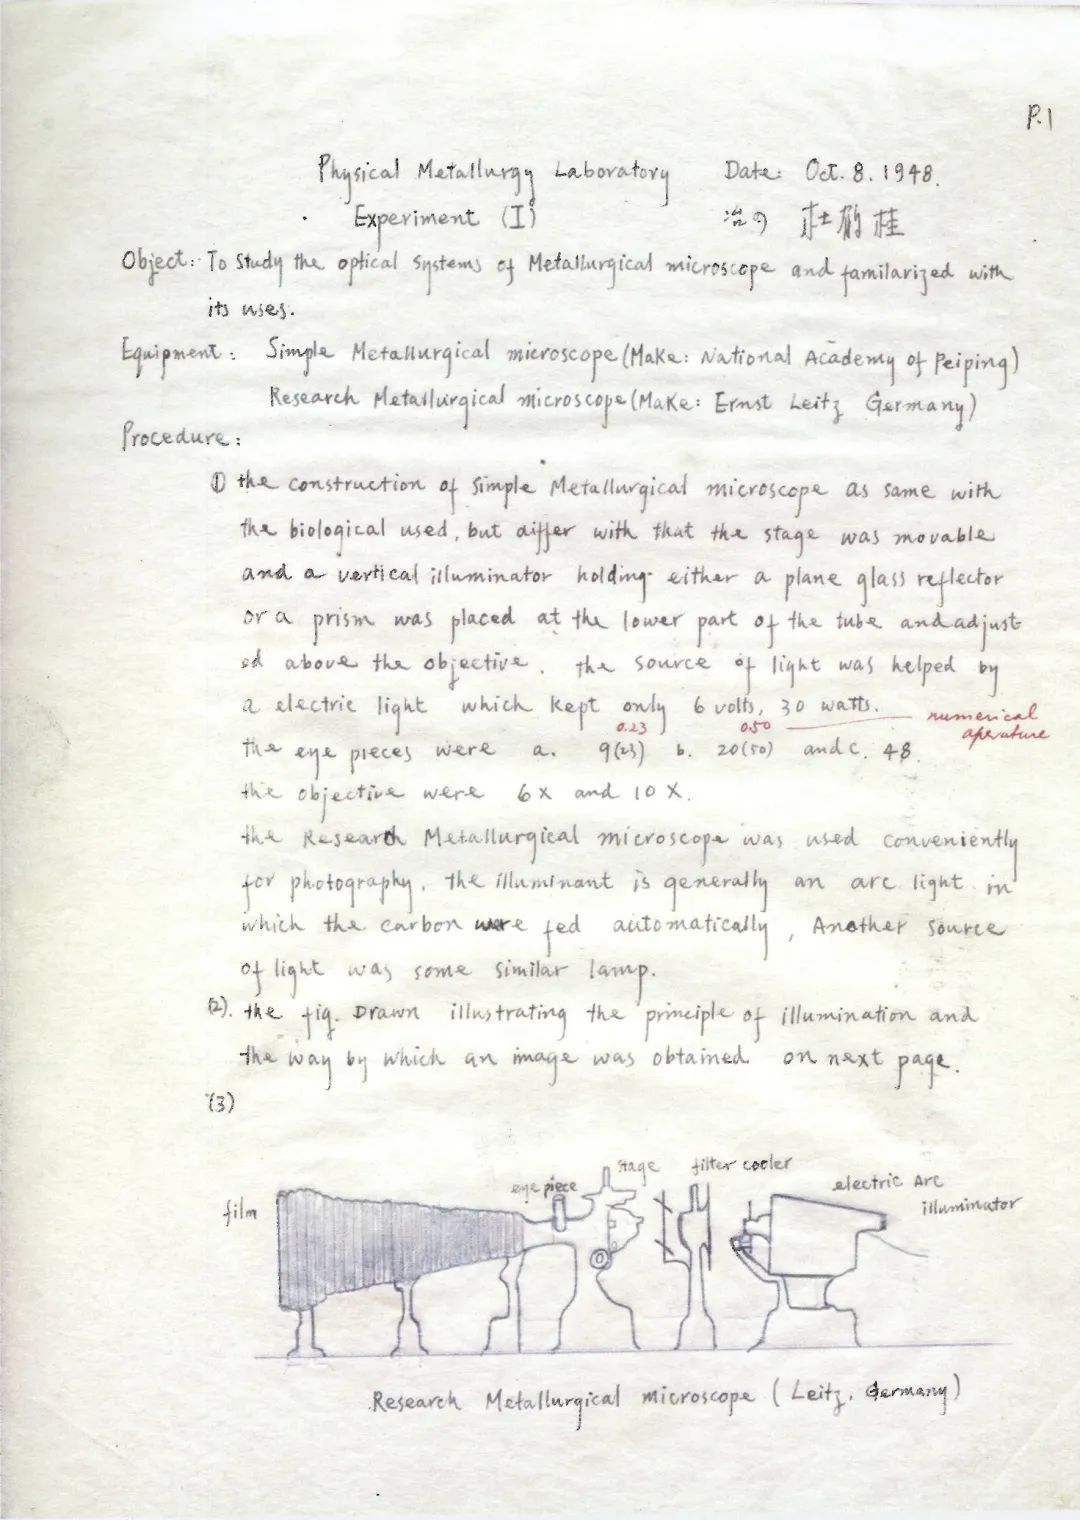 P.1
Physical Metallurgy Laboratory Date: Oct. 8. 1948.
Experiment (I) 冶 杜 桂
Object: To Study the optical systems of Metallurgical microscope and familarized with
its uses.
Equipment: Simple Metallurgical microscope (Make: National Academy of Peiping)
Research Metallurgical microscope (Make: Ernst Leitz Germany)
Procedure:
① the construction of Simple Metallurgical microscope as same with
the biological used, but differ with that the stage was movable
and a vertical illuminator holding either a plane glass reflector
or a prism was placed at the lower part of the tube and adjust
ed above the objective. the source of light was helped by
a electric light which kept only 6 volts, 30 watts.
0.23 0.50 numerical
aperature
the eye pieces were a. 9(23) b. 20(50) and c. 48.
the objective were 6 X and 10 X.
the Research Metallurgical microscope was used conveniently
for photography. The illuminant is generally an arc light in
which the carbon were fed automatically, Another source
of light was some similar lamp.
(2). the fig. Drawn illustrating the principle of illumination and
the way by which an image was obtained on next page.
(3)
film
eye piece
stage
filter cooler
electric Arc
illuminator
Research Metallurgical microscope (Leitz. Germany)